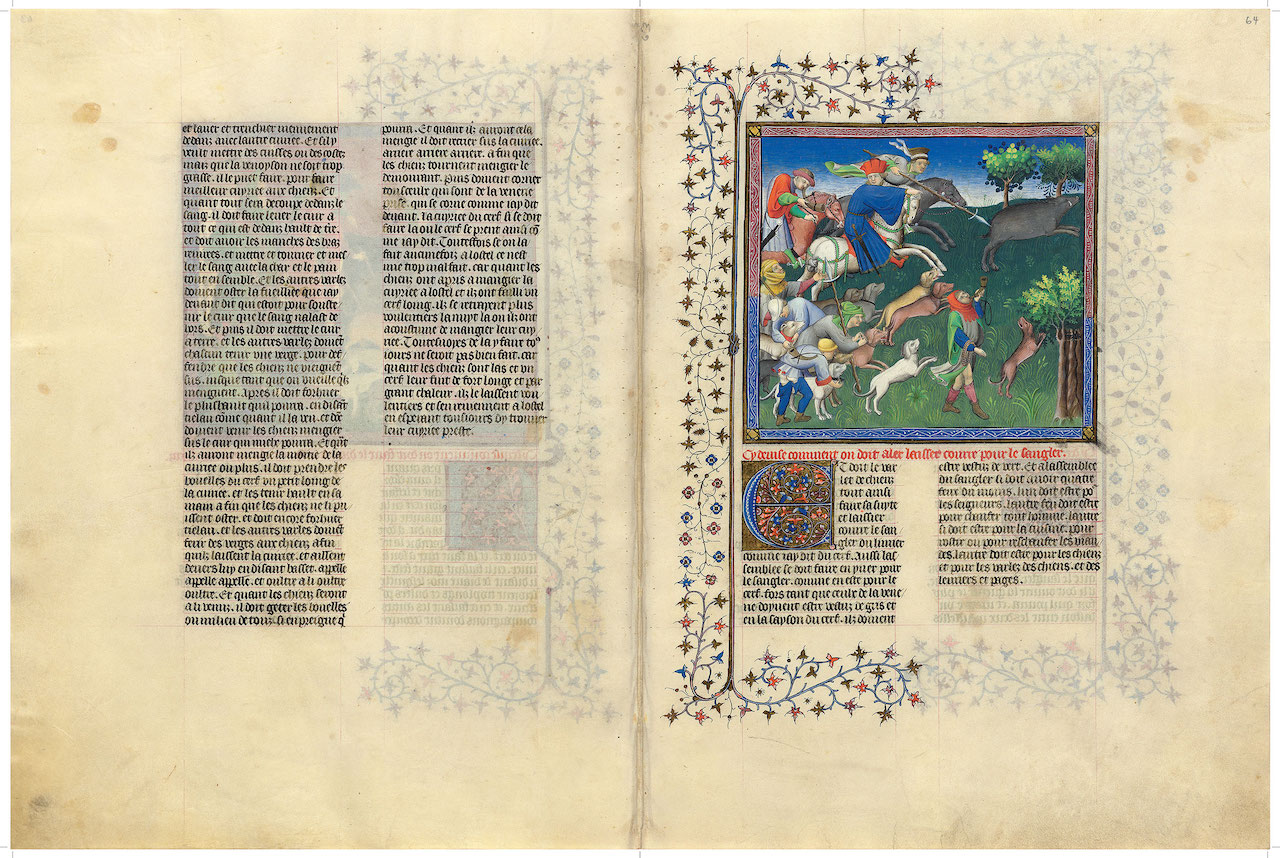 et lauer et trenchier menuement
dedans auec lautre cuiree. Et sil y
veult mettre des cuisses ou des costez
mais que la venoyson ne soit trop
grasse. il le puet faire. pour faire
meilleur cuyriee aux chiens. Et
quant tout sera decoupe dedans le
sang. il doit faire leuer le cuir a
tout ce qui est dedans hault de tire.
et doit auoir les manches des bras
remirees. et mettre et tourner et mes
ler le sang auec la char et le pain
tout ensemble. Et les autres varles
doiuent oster la fueilliee que iay
deuant dit qui estoit pour soustenir
sur le cuir que le sang nalast de
hors. Et puis il doit mettre le cuir
a terre. et les autres varles doiuent
chascun tenir vne verge. pour def
fendre que les chiens ne vieignent
sus. iusque tant que on vueille qlz
menguent. Apres il doit forhuer
le plus hault qui pourra. en disant
tielau come quant il la veu. et dont
doiuent venir les chiens mengier
sus le cuir qui mielx pourra. Et quant
ils auront menge la moitie de la
cuiree ou plus. il doit prendre les
bouelles du cerf vn petit loing de
la cuiree. et les tenir hault en sa
main a fin que les chiens ne li pu
issent oster. et doit encore forhuer
tielau. et les autres varles doiuent
ferir des verges aux chiens afin
quilz laissent la cuiree. et aillent
deuers luy en disant basset. appelle
appelle appelle. et oultre a li oultre
oultre. Et quant les chiens seront
a li venus. il doit geter les bouelles
ou milieu de tous. si en preigne q
pourra. Et quant ilz auront cela
mengie il doit retrer sus la cuiree.
arriere arriere arriere. a fin que
les chiens tournent mengier le
demourant. Puis doiuent corner
tous ceulz qui sont de la venerie
prise. qui se corne comme iay dit
deuant. La cuyriee du cerf si se doit
faire la ou le cerf se prent ainsi co
me iay dit. Toutesfois se on la
fait aucunefois a lostel ce nest
mie trop mal fait. car quant les
chiens ont apris a mangier la
cuyriee a lostel et ilz ont failli vn
cerf loing. ilz se reuayent plus
voulentiers la nuyt la ou ilz ont
acoustume de manger leur cuy
riee. Toutesuoyes de la y faire to⁹
iours ne seroit pas bien fait. car
quant les chiens sont las et vn
cerf leur fuit de fort longe et par
grant chaleur. ilz le laissent vou
lentiers et sen reuiennent a lostel
en esperant tousiours dy trouuer
leur cuyriee preste.
64
Cy deuise comment on doit aler laissier courre pour le sangler.
ET doit le var
let de chiens
tout ainsi
faire sa suyte
et laissier
courre le san
gler ou limier
comme iay dit du cerf. Aussi las
semblee se doit faire en yuer pour
le sangler. comme en este pour le
cerf. fors tant que ceulz de la vene
rie doyuent estre vestus de gris et
en la sayson du cerf. ilz doiuent
estre vestus de vert. Et a lassemblee
du sangler si doit auoir quatre
feux du moins. lun doit estre po
les seigneurs. lautre feu doit estre
pour chaufer tout homme. lautre
si doit estre pour la cuisine. pour
rostir ou pour reschaufer les vian
des. lautre doit estre pour les chiens
et pour les varles des chiens. et des
leuriers et pages.